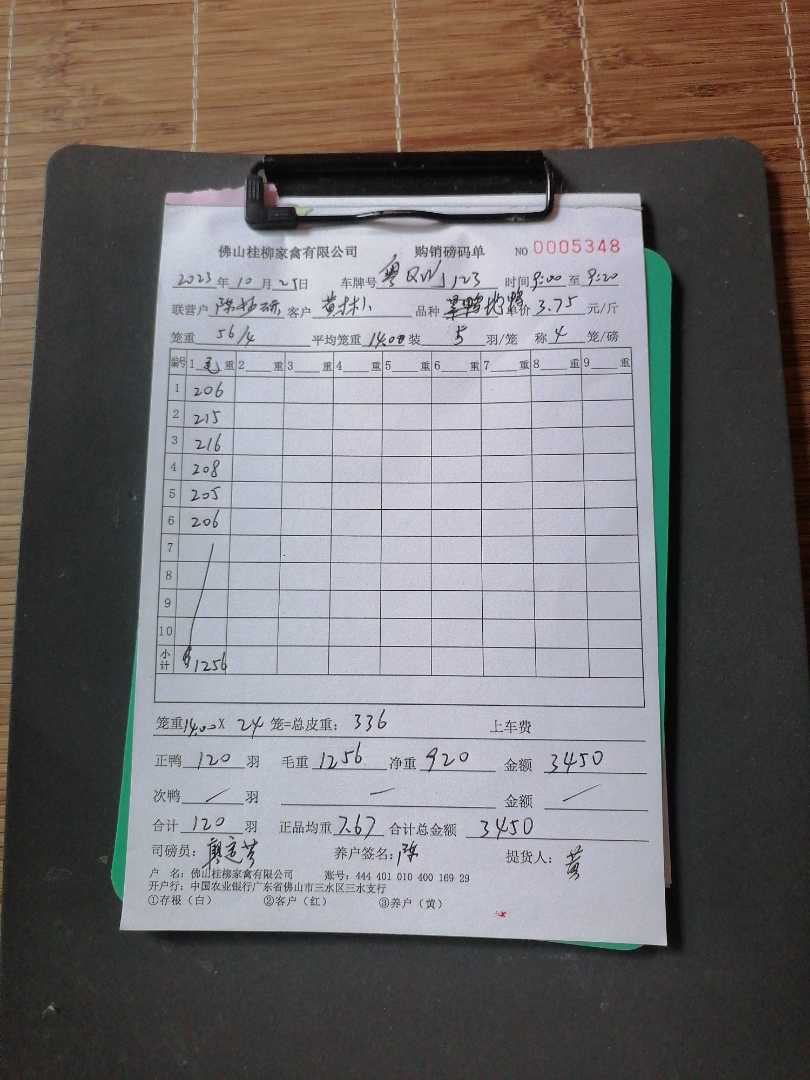 佛山桂柳家禽有限公司 购销磅码单 NO 0005348
2023年10月25日 车牌号 粤 123 时间9:00至9:20
联营户 陈 客户 黄 品种 单价 3.75 元/斤
笼重 56/4 平均笼重 14.00 装 5 羽/笼 称 4 笼/磅
编号 1 毛 重 2 重 3 重 4 重 5 重 6 重 7 重 8 重 9 重
1 206
2 215
3 216
4 208
5 205
6 206
7
8
9
10
小计 1256
笼重14.00X 24 笼=总皮重: 336 上车费
正鸭 120 羽 毛重 1256 净重 920 金额 3450
次鸭 / 羽 — 金额 /
合计 120 羽 正品均重 7.67 合计总金额 3450
司磅员: 养户签名: 陈 提货人: 黄
户 名: 佛山桂柳家禽有限公司 账号: 444 401 010 400 169 29
开户行: 中国农业银行广东省佛山市三水区三水支行
①存根（白） ②客户（红） ③养户（黄）